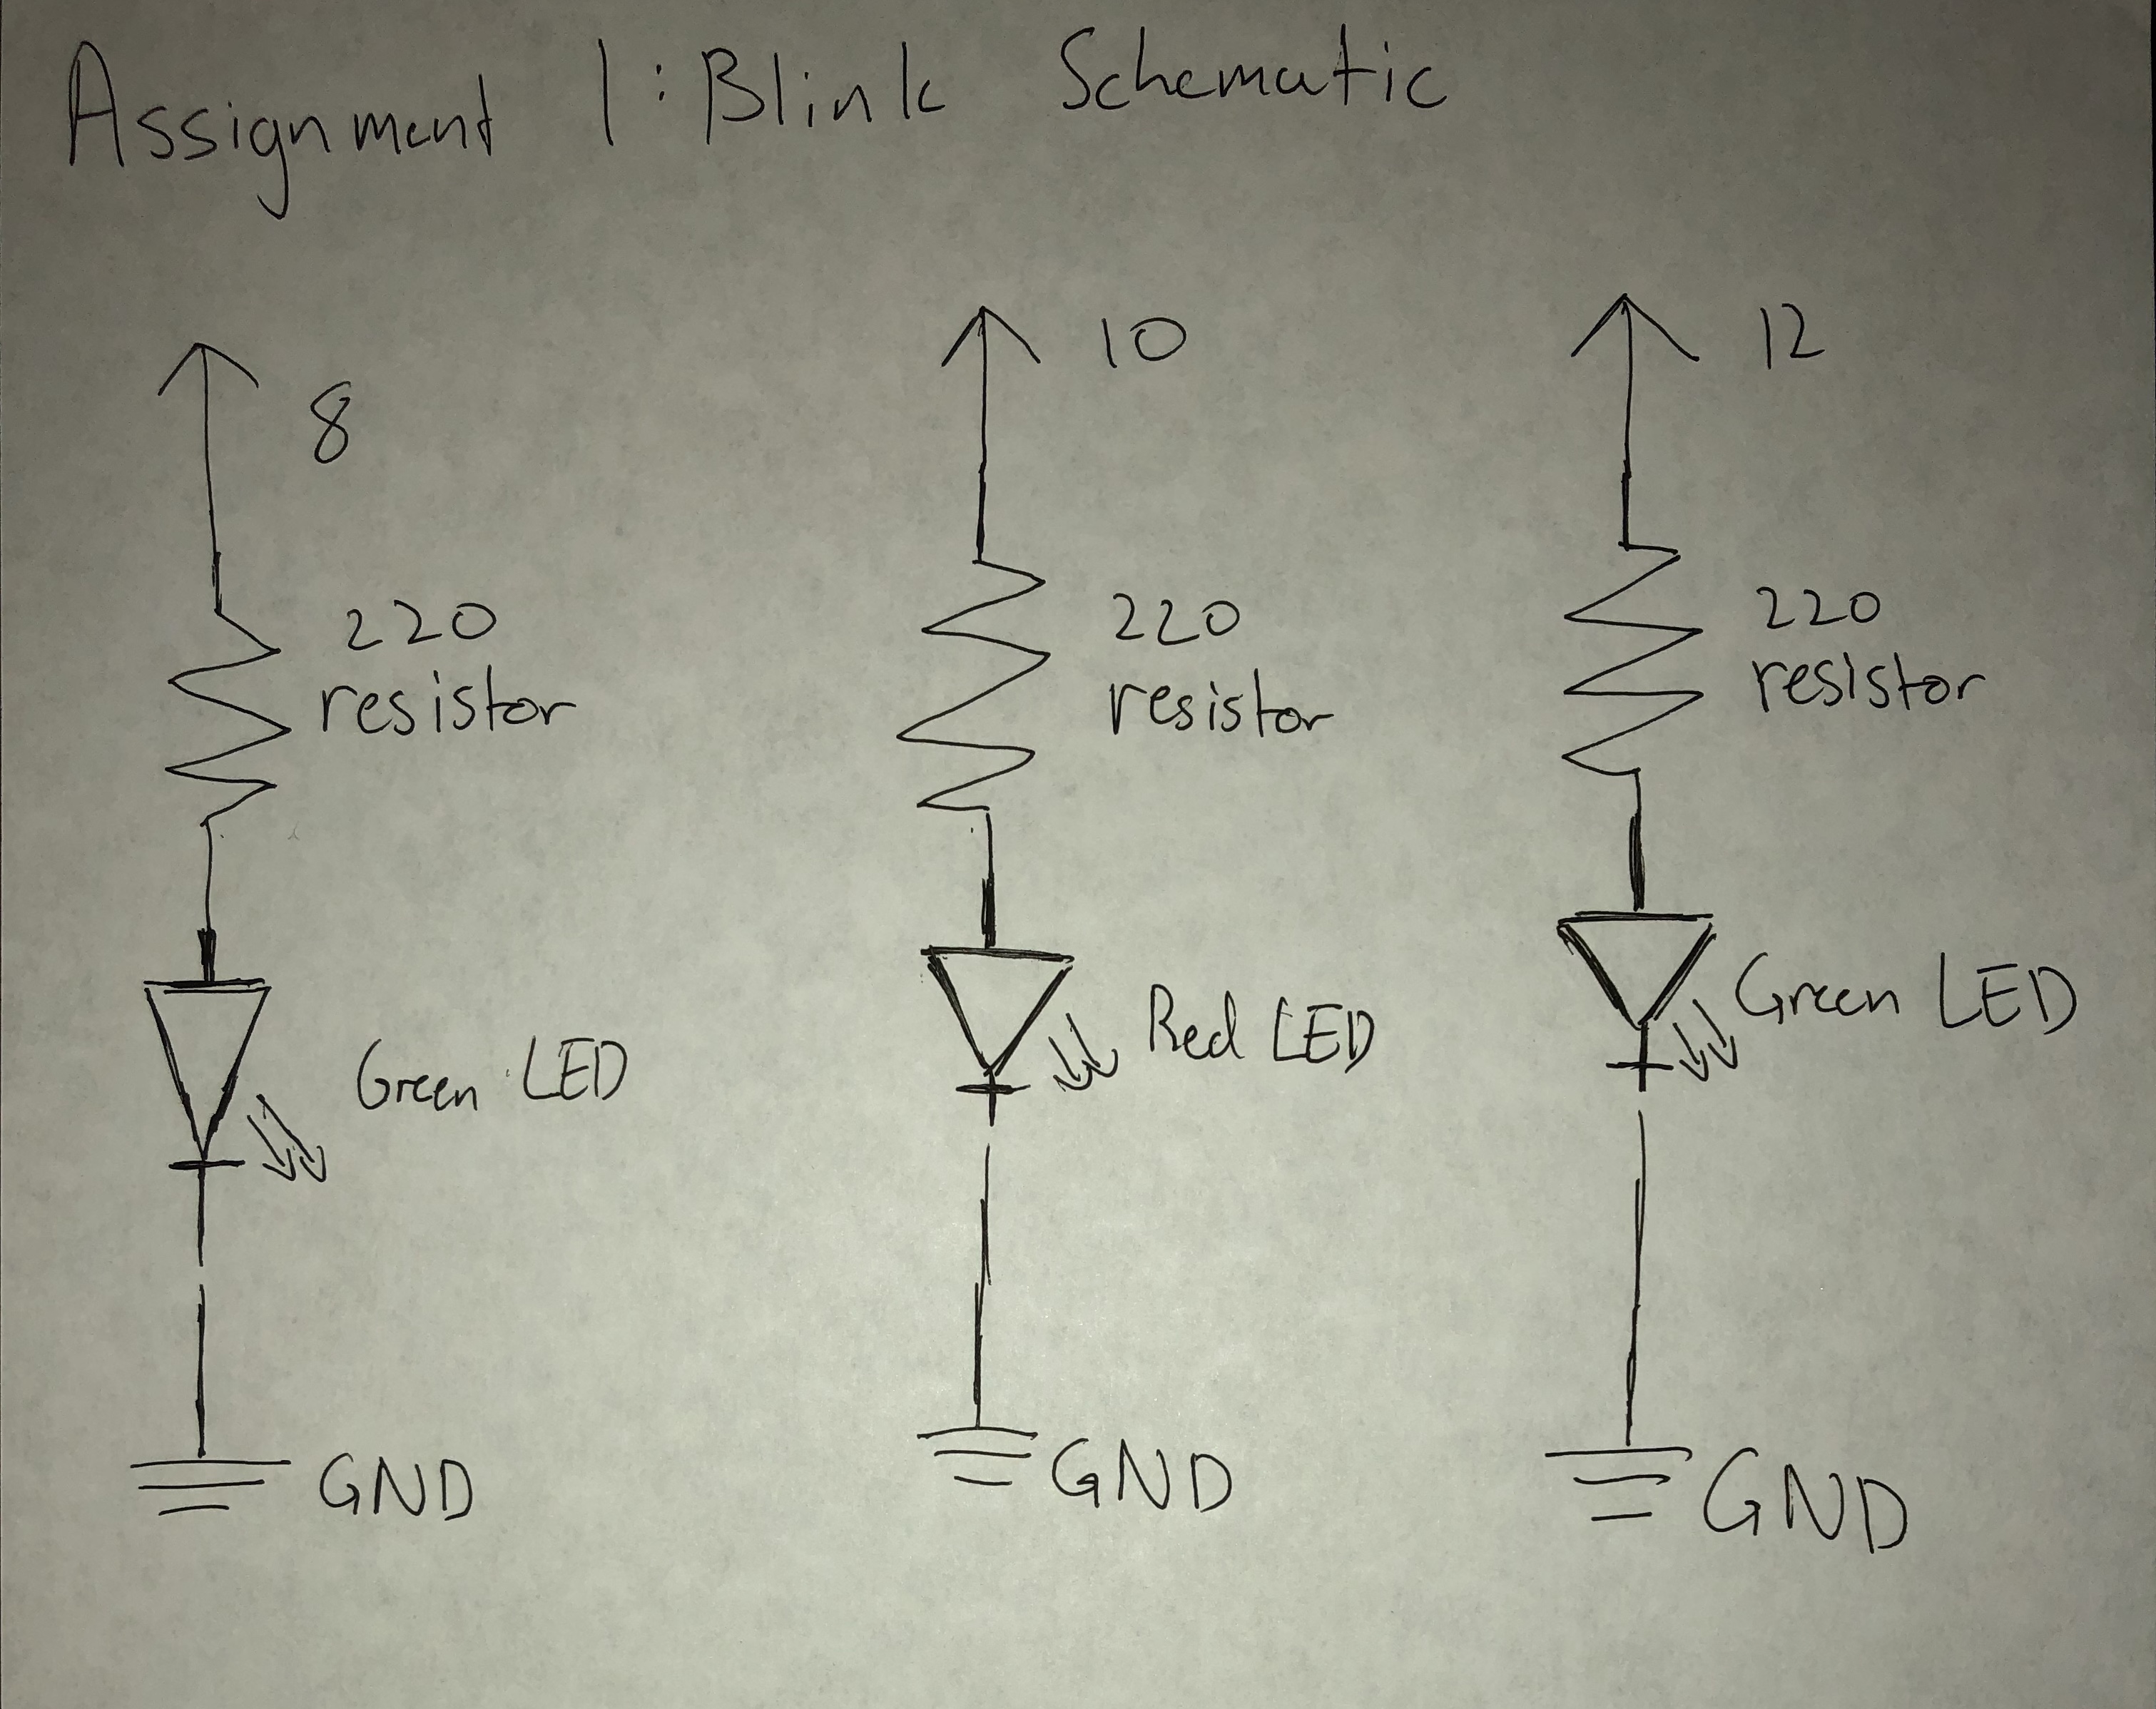 Assignment 1: Blink Schematic
8
220
resistor
Green LED
GND
10
220
resistor
Red LED
GND
12
220
resistor
Green LED
GND